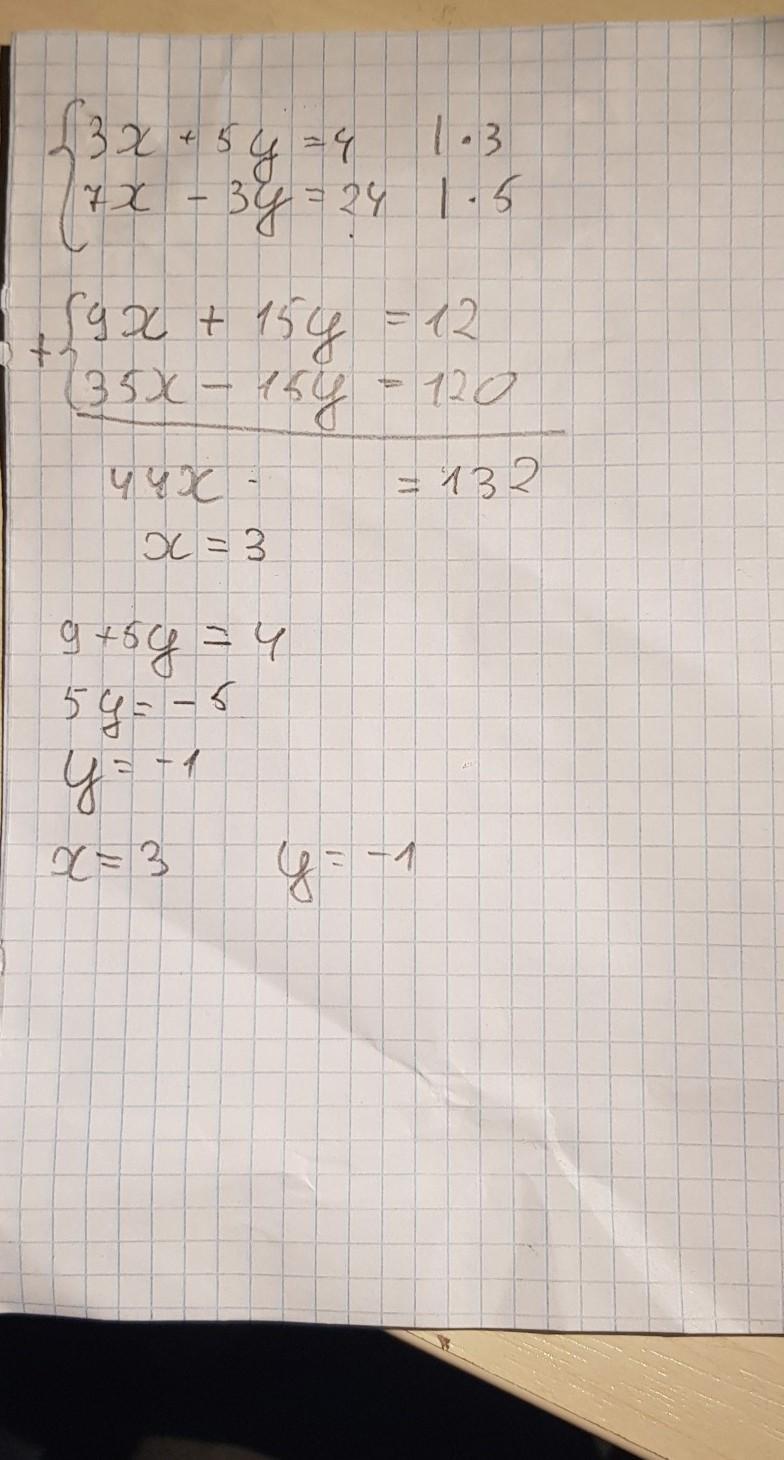 3x + 5y = 4 | · 3
7x - 3y = 24 | · 5
+ 9x + 15y = 12
35x - 15y = 120
44x = 132
x = 3
9 + 5y = 4
5y = -5
y = -1
x = 3 y = -1